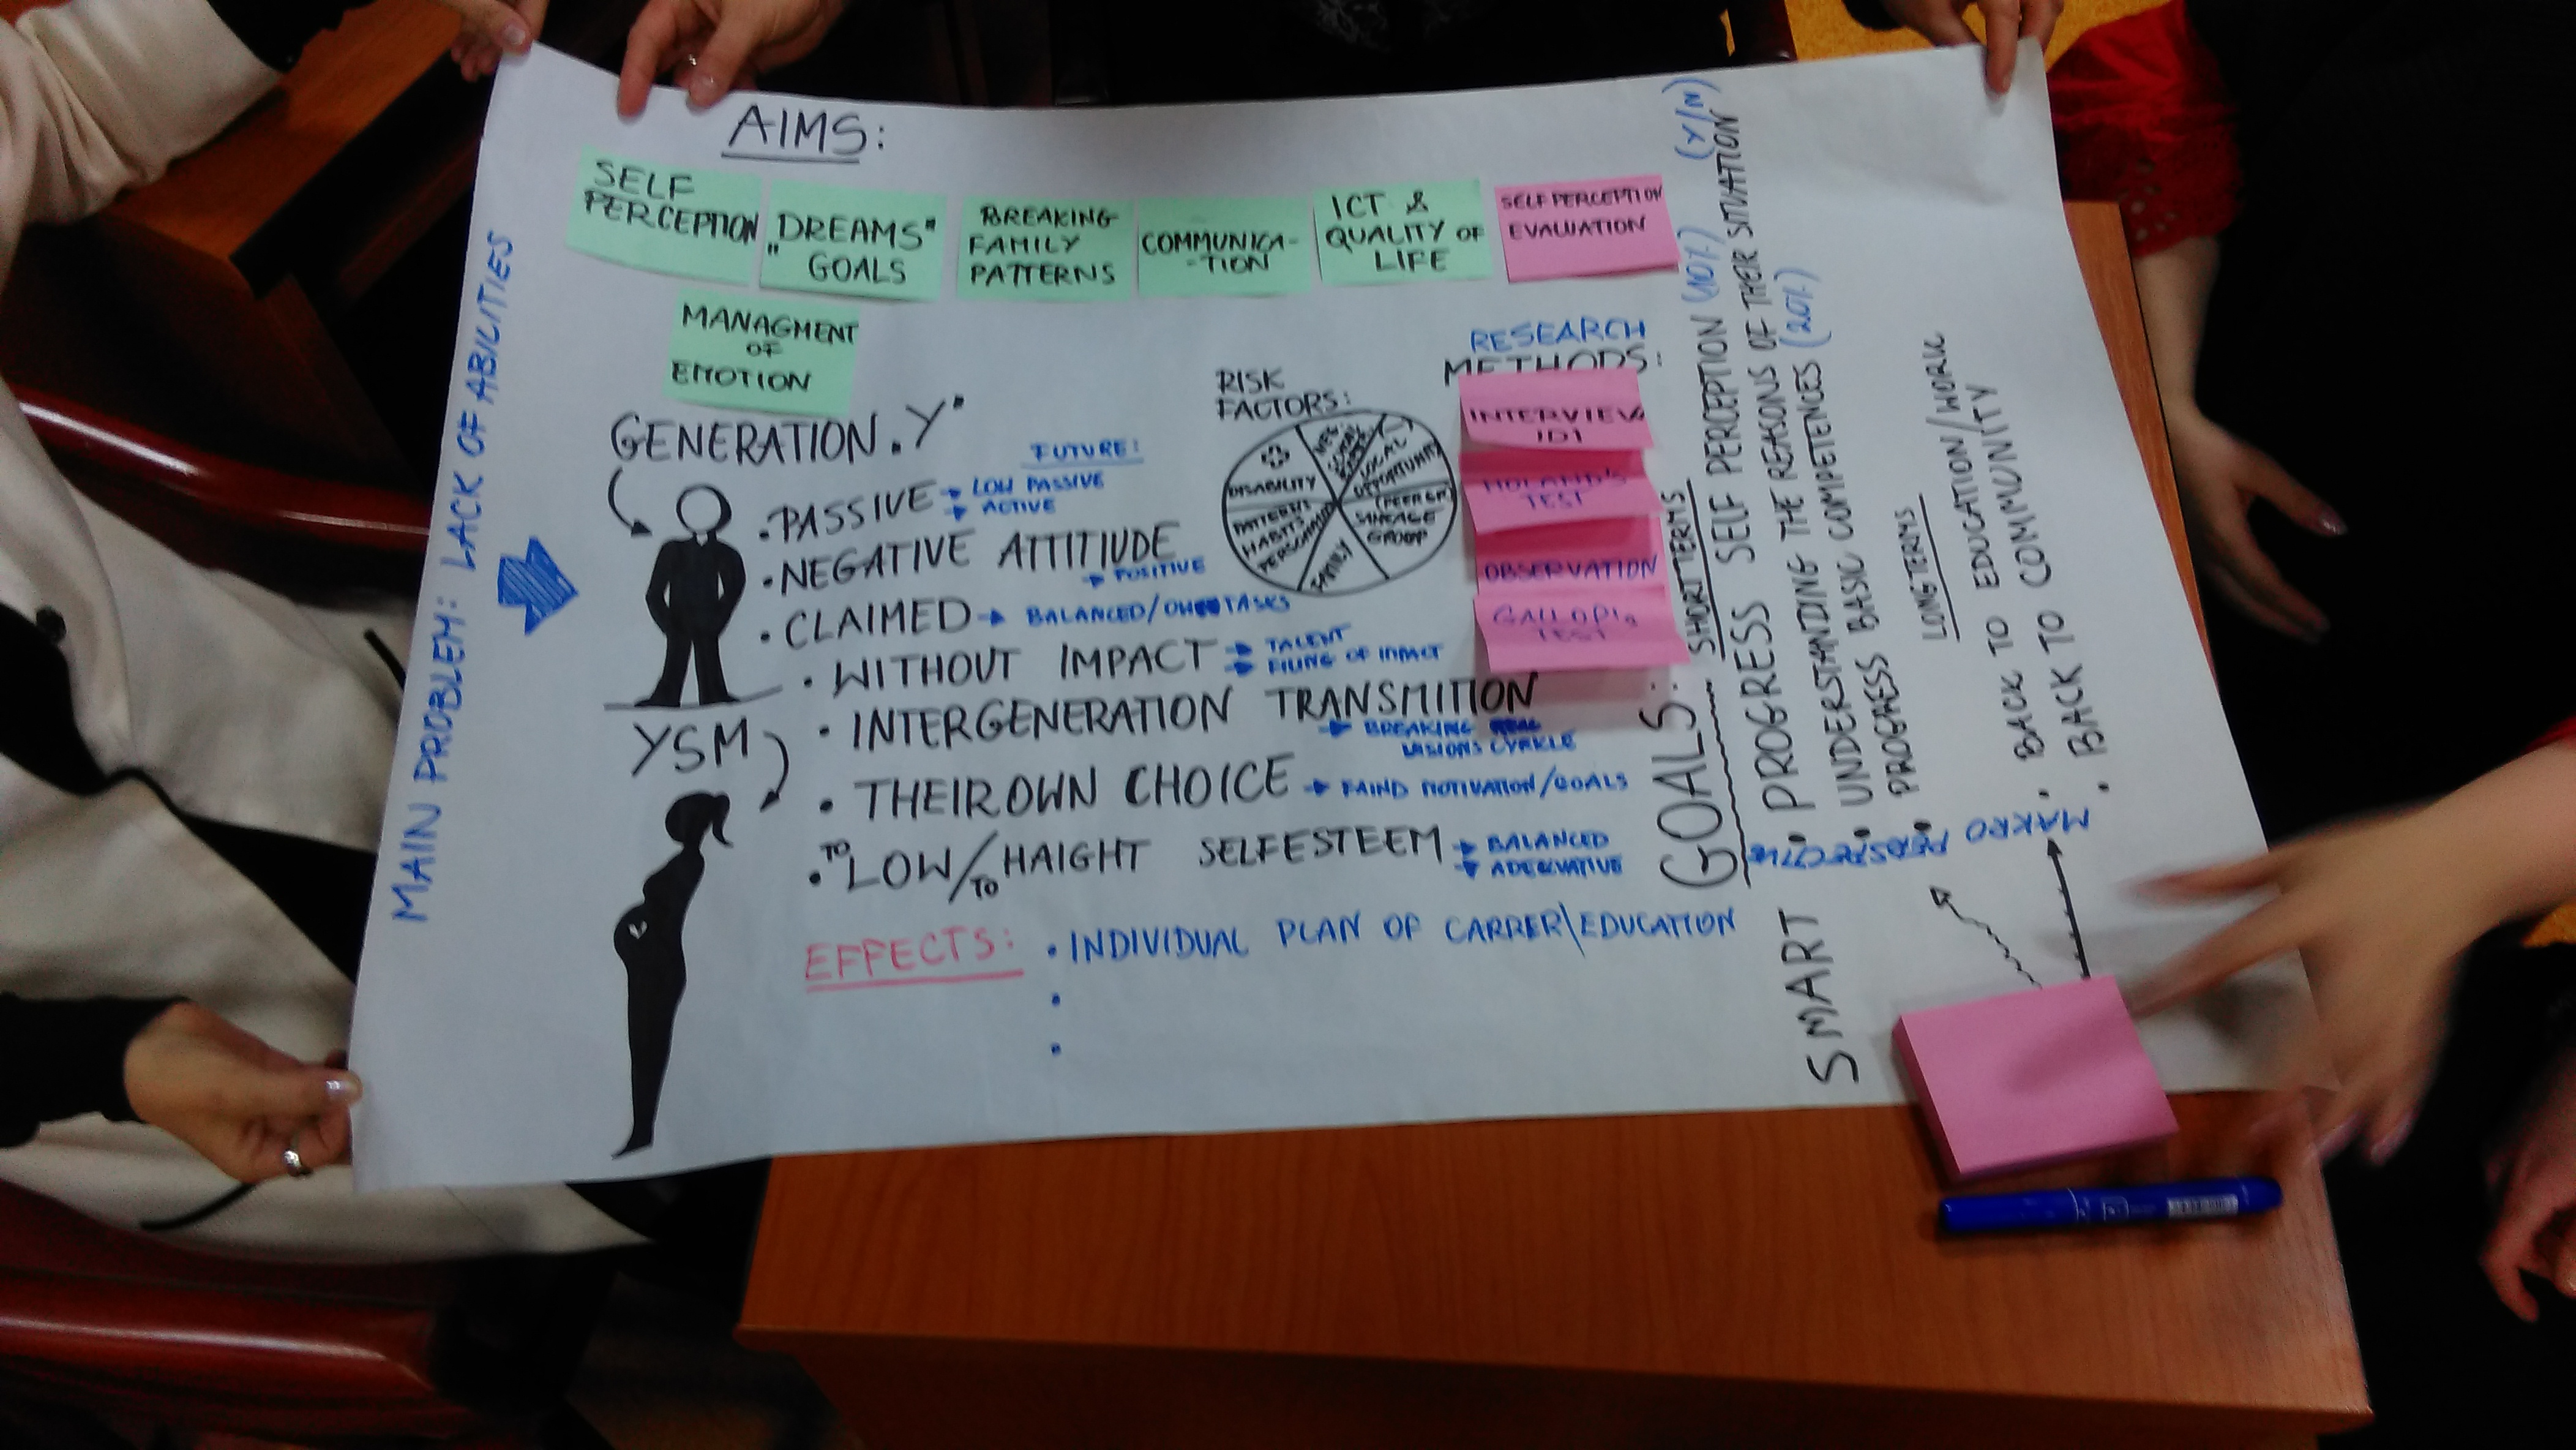 AIMS:
SELF
PERCEPTION
„DREAMS"
GOALS
BREAKING
FAMILY
PATTERNS
COMMUNICA-
-TION
ICT &
QUALITY OF
LIFE
SELF PERCEPTION
EVALUATION
MANAGMENT
OF
EMOTION
MAIN PROBLEM: LACK OF ABILITIES
GENERATION „Y"
FUTURE:
• PASSIVE → LOW PASSIVE
→ ACTIVE
• NEGATIVE ATTITIUDE
→ POSITIVE
• CLAIMED → BALANCED/ TASKS
• WITHOUT IMPACT → TALENT
→ FILING OF IMPACT
• INTERGENERATION TRANSMITION
→ BREAKING
CYRKLE
YSM
• THEIR OWN CHOICE → FAIND MOTIVATION/GOALS
• TO LOW/TO HAIGHT SELFESTEEM → BALANCED
→ ADEQVATIVE
EFFECTS: • INDIVIDUAL PLAN OF CARRER\EDUCATION
•
•
RISK
FACTORS:
DISABILITY
LOCAL
OPORTUNITY
PEER GR.
GROUP
FAMILY
PATTERNS
HABITS
RESEARCH
METHODS:
INTERVIEW
IDI
HOLAND'S
TEST
OBSERVATION
GALLOP'S
TEST
GOALS: SHORT TERMS
• PROGRESS SELF PERCEPTION (10%) (Y/N)
• UNDERSTANDING THE REASONS OF THEIR SITUATION
• PROGRESS BASIC COMPETENCES (20%)
LONG TERMS
• BACK TO EDUCATION/WORK
• BACK TO COMMUNITY
MAKRO PERSPECTIVE
SMART